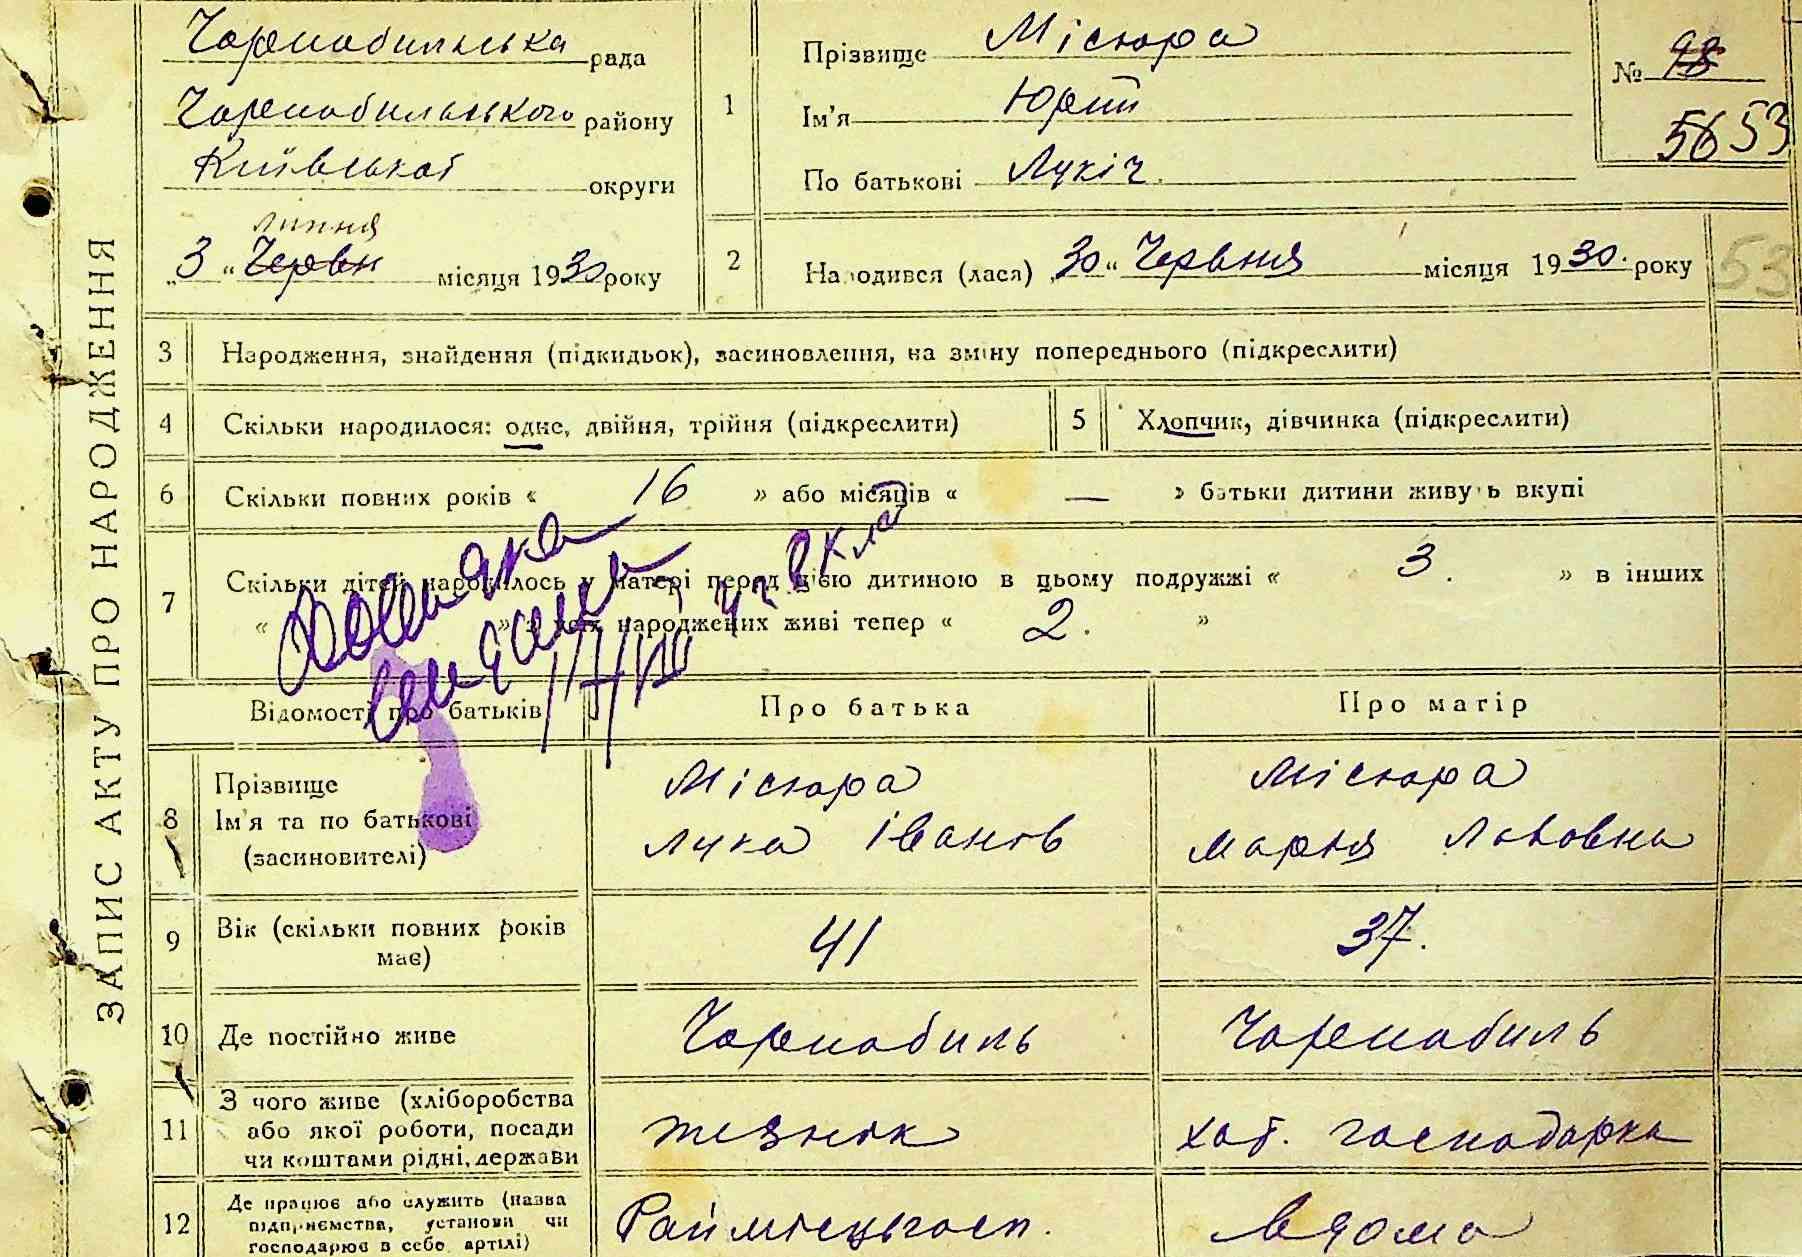 ЗАПИС АКТУ ПРО НАРОДЖЕННЯ
Чорнобильська рада
Чорнобильського району
Київської округи
липня
„3“ Червн місяця 1930 року
1
Прізвище Місюра
Ім'я Юрій
По батькові Лукіч.
№ 98
5653
2
Народився (лася) „30“ Червня місяця 1930. року
53
3 Народження, знайдення (підкидьок), засиновлення, на зміну попереднього (підкреслити)
4 Скільки народилося: одне, двійня, трійня (підкреслити)
5 Хлопчик, дівчинка (підкреслити)
6 Скільки повних років « 16 » або місяців « — » батьки дитини живуть вкупі
7 Скільки дітей народилось у матері перед цією дитиною в цьому подружжі « 3. » в інших
« » з усіх народжених живі тепер « 2. »
17/VIII
Відомості про батьків
Про батька
Про матір
8 Прізвище
Ім'я та по батькові
(засиновителі)
Місюра
Лука Іванов
Місюра
Мария Львовна
9 Вік (скільки повних років
має)
41
37.
10 Де постійно живе
Чорнобиль
Чорнобиль
11 З чого живе (хліборобства
або якої роботи, посади
чи коштами рідні, держави
хат. господарка
12 Де працює або служить (назва
підприємства, установи чи
господарює в себе, артілі)
Раймісцьгосп.
вдома